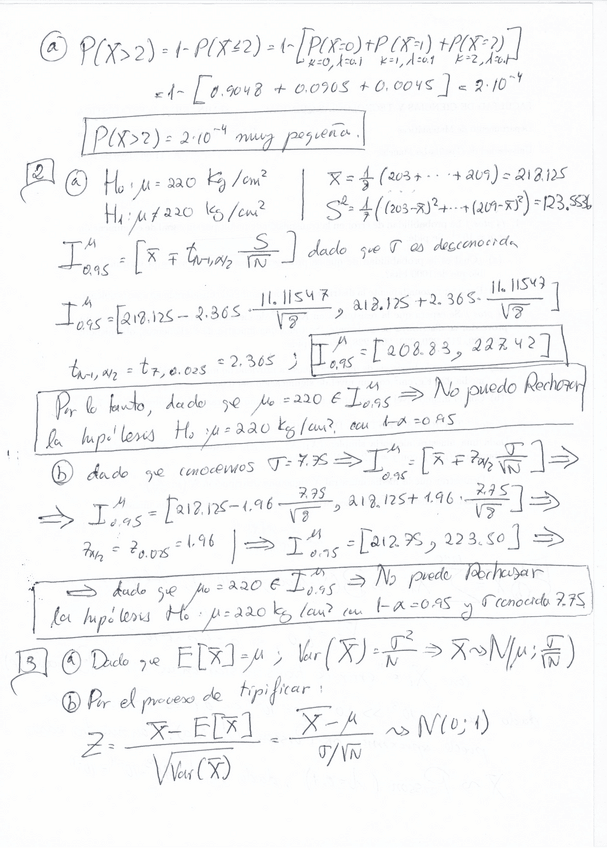 ⓐ P(X>2) = 1-P(X≤2) = 1-[P(X=0)+P(X=1)+P(X=2)]
k=0, λ=0.1 k=1, λ=0.1 k=2, λ=0.1
= 1- [0.9048 + 0.0905 + 0.0045] = 2·10⁻⁴
P(X>2) = 2·10⁻⁴ muy pequeña.
2 ⓐ H₀: μ = 220 kg/cm² | x̄ = 1/8 (203+ ··· +209) = 218.125
H₁: μ ≠ 220 kg/cm² | S² = 1/7 ((203-x̄)²+···+(209-x̄)²) = 123.5536
I^μ_0.95 = [x̄ ∓ t_N-1,α/2 S/√N] dado que σ es desconocida
I^μ_0.95 = [218.125 - 2.365 · 11.11547/√8, 218.125 + 2.365 · 11.11547/√8]
t_N-1,α/2 = t_7,0.025 = 2.365 ; I^μ_0.95 = [208.83, 227.42]
Por lo tanto, dado qe μ₀ = 220 ∈ I^μ_0.95 ⇒ No puedo Rechazar
la hipótesis H₀: μ = 220 kg/cm², con 1-α = 0.95
ⓑ dado que conocemos σ = 7.75 ⇒ I^μ_0.95 = [x̄ ∓ z_α/2 σ/√N] ⇒
⇒ I^μ_0.95 = [218.125 - 1.96 · 7.75/√8, 218.125 + 1.96 · 7.75/√8] ⇒
z_α/2 = z_0.025 = 1.96 | ⇒ I^μ_0.95 = [212.75, 223.50] ⇒
⇒ dado que μ₀ = 220 ∈ I^μ_0.95 ⇒ No puedo Rechazar
la hipótesis H₀: μ = 220 kg/cm² con 1-α = 0.95 y σ conocida 7.75
3 ⓐ Dado que E[X̄] = μ ; Var(X̄) = σ²/N ⇒ X̄ ~ N(μ; σ/√N)
ⓑ Por el proceso de tipificar:
Z = (X̄ - E[X̄])/√Var(X̄) = (X̄ - μ)/(σ/√N) ~ N(0; 1)